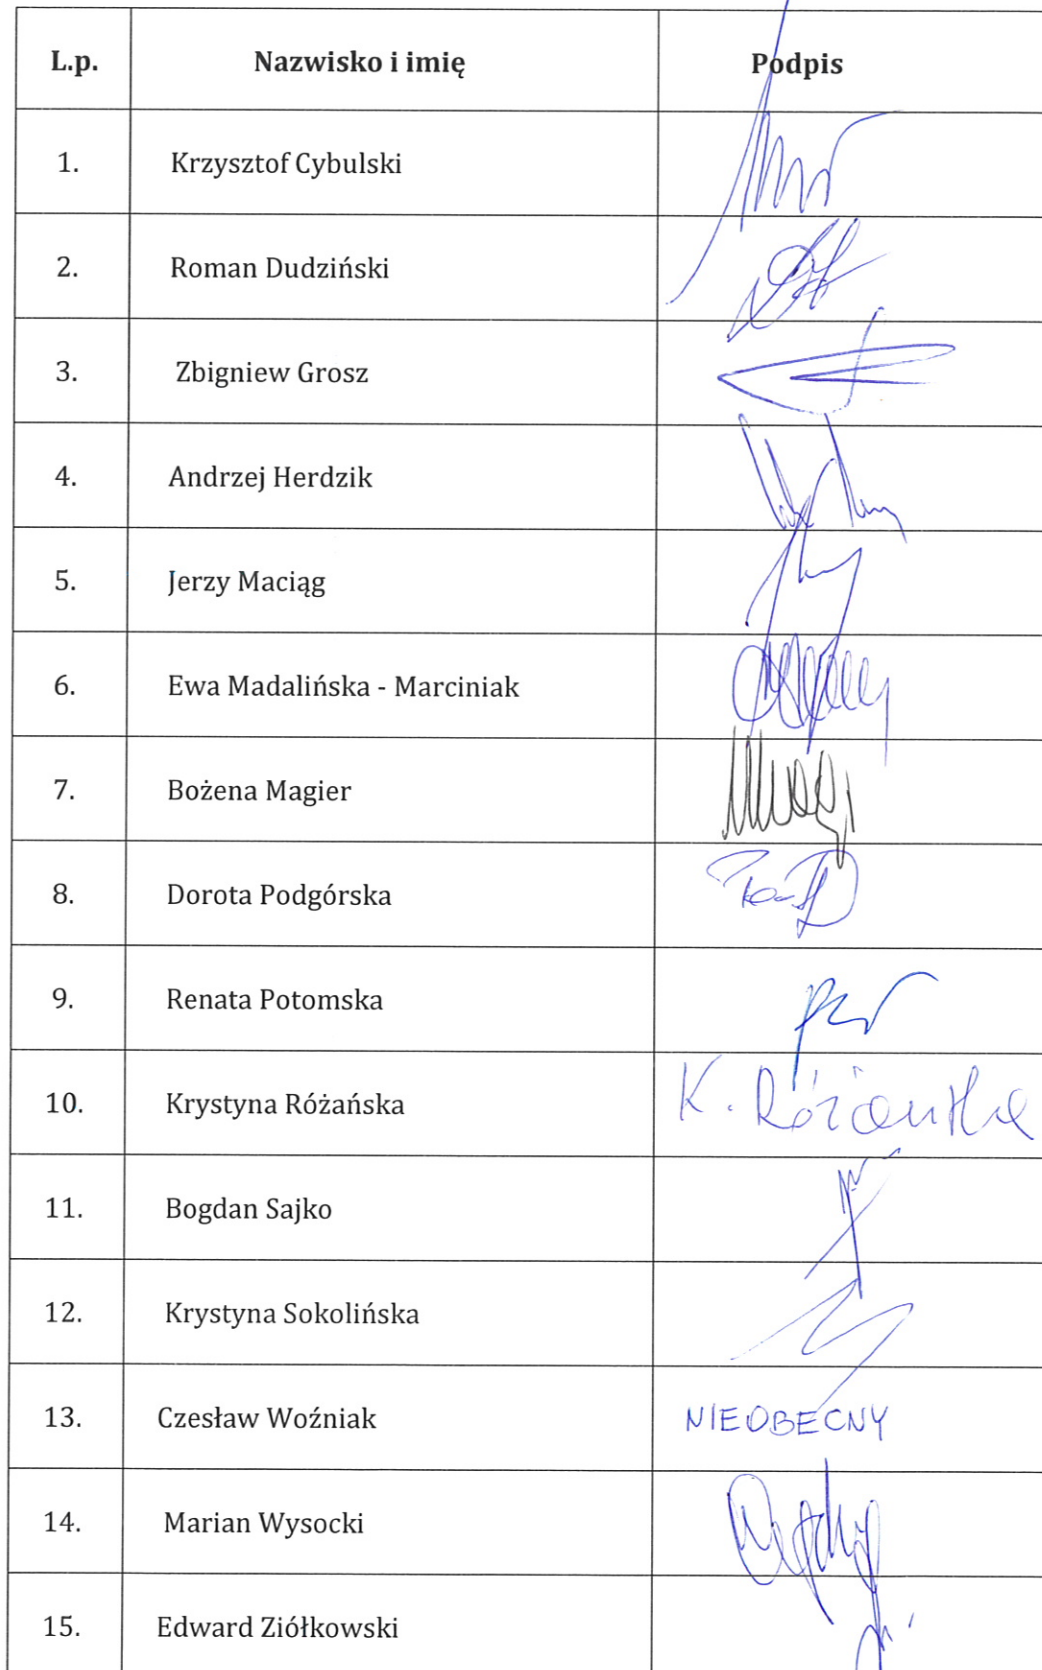 L.p. Nazwisko i imię Podpis
1. Krzysztof Cybulski
2. Roman Dudziński
3. Zbigniew Grosz
4. Andrzej Herdzik
5. Jerzy Maciąg
6. Ewa Madalińska - Marciniak
7. Bożena Magier
8. Dorota Podgórska
9. Renata Potomska
10. Krystyna Różańska K. Różańska
11. Bogdan Sajko
12. Krystyna Sokolińska
13. Czesław Woźniak NIEOBECNY
14. Marian Wysocki
15. Edward Ziółkowski